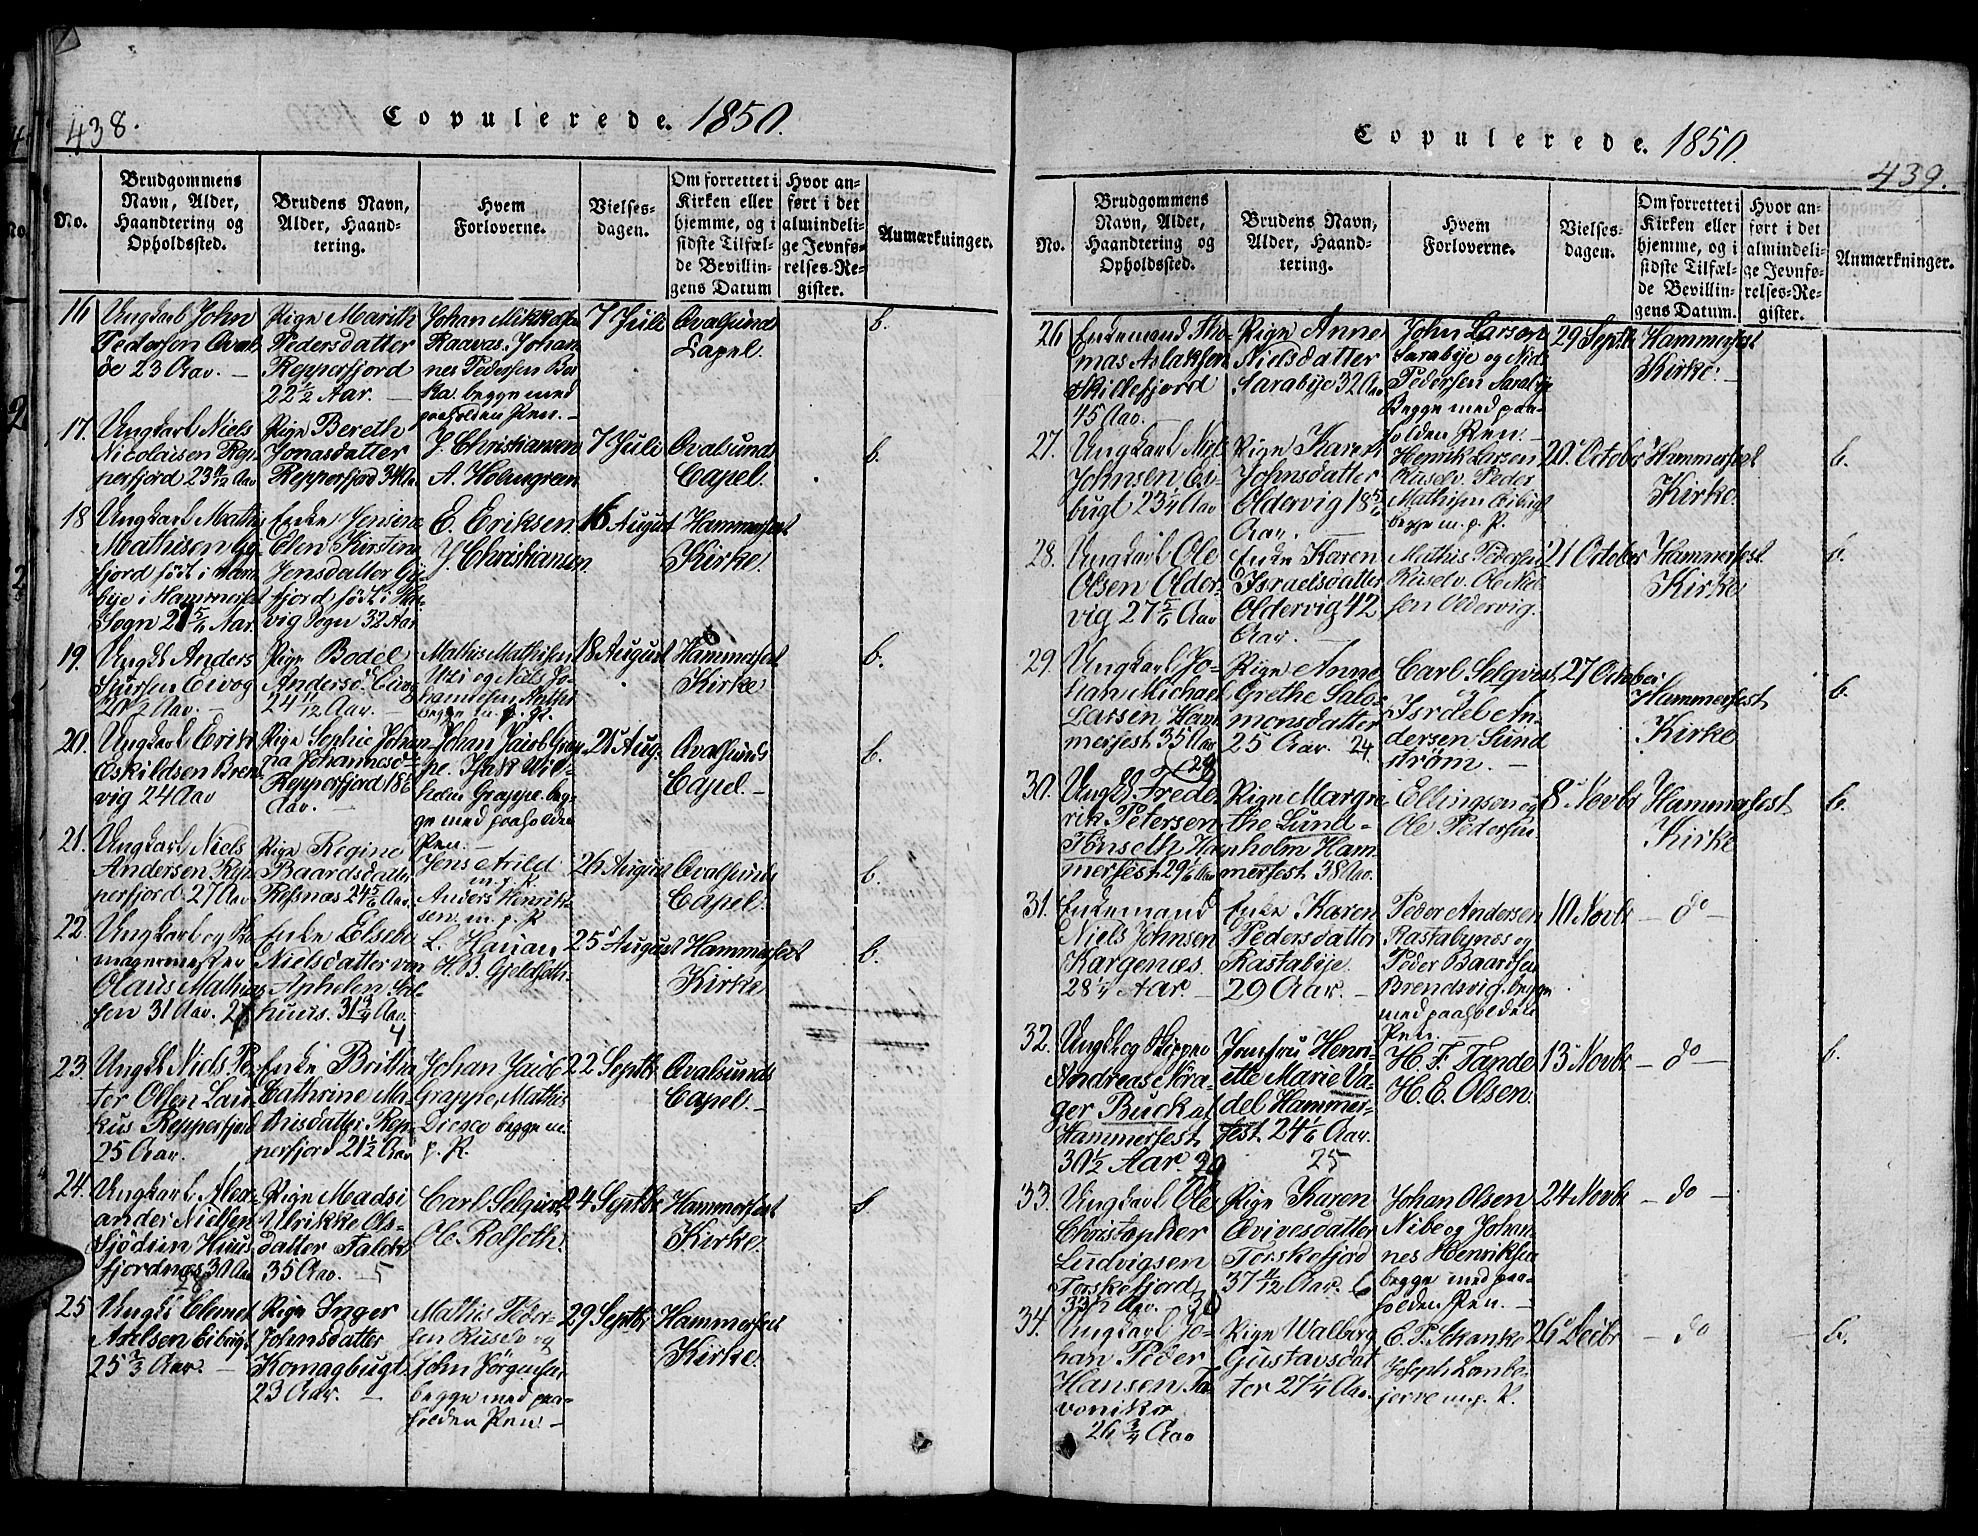 438.
Copulerede. 1850.
No.
Brudgommens
Navn, Alder,
Haandtering og
Opholdssted.
Brudens Navn,
Alder, Haand-
tering.
Hvem
Forloverne.
Vielses-
dagen.
Om forrettet i
Kirken eller
hjemme, og i
sidste Tilfæl-
de Bevillin-
gens Datum
Hvor an-
ført i det
almindeli-
ge Jevnfø-
relses-Re-
gister.
Anmærkninger.
16
Ungkarl John
Pedersen
de 23 Aar.
Pige Marith
Pedersdatter
Repperfjord
22 1/2 Aar.
Johan Mikkelsen
Johan-
nes Pedersen
begge med
paaholden Pen.
7 Juli
Qvalsund
Capel.
b.
17.
Ungkarl Niels
Nicolaisen Rep-
perfjord 23 Aar
Pige Bereth
Jonasdatter
Repperfjord
J. Christiansen
A. Holmgreen
7 Juli
Qvalsund
Capel.
b.
18
Ungkarl Mathis
Mathisen
fjord født i
bÿe i Hammerfest
Sogn 21 5/6 Aar.
Enke
Elen Kirsten
Jensdatter
fjord født i
vig Sogn 32 Aar
E. Eriksen
J. Christiansen
16 August
Hammerfest
Kirke.
19.
Ungkl Anders
Aar.
Pige Bodel
Andersd.
24 11/12 Aar.
Mathis Mathisen
og Niels Jo-
hannesen
begge m. p. P.
18 August
Hammerfest
Kirke
b.
20.
Ungkarl Erik
Eskildsen
vig 24 Aar
Pige Sophie
Johannesd
Repperfjord
Aar.
Johan Jacob Grap-
pe. Isak Wil-
helm Grappe. beg-
ge med paaholden
Pen.
Aug.
Qvalsunds
Capel.
b.
21.
Ungkarl Niels
Andersen Rep-
perfjord 27 Aar
Pige Regine
Baardsdatter
Refsnæs 24 5/6 Aar
Jens Arild
m. p. P.
Anders Henrik-
sen. m. p. P.
26 August
Qvalsunds
Capel.
b.
22.
Ungkarl og
magermester
Olaus Mathie-
sen 31 Aar.
Enke Elsebe
Nielsdatter von
Aphelen
huus. 31 3/4 Aar.
4
L. Hauan
25 August
Hammerfest
Kirke.
b.
23.
Ungkl Niels Pe-
ter Olsen Lau-
kus Repperfjord
25 Aar.
Enke Britha
Cathrine Ma-
thisdatter Rep-
perfjord 21 1/2 Aar
Johan Jacob
Grappe, Mathis
begge m.
p. P.
22 Septbr
Qvalsunds
Capel.
24.
Ungkarl Alex-
ander Nielsen
Sjödien
fjordnæs 30 Aar
28
Pige Madsi
Ulrikke Ols-
datter
35 Aar.
5
Carl Selqvist
Ole Rolfseth.
24 Septbr
Hammerfest
Kirke.
b
25
Ungkl Clemet
Axelsen
25 2/3 Aar.
Pige Inger
Johnsdatter
Komagbugt
23 Aar.
Mathis Peder-
sen Kuselv og
John Jørgensen
begge med paa-
holden Pen.
29 Septbr
Hammerfest
Kirke.
Copulerede. 1850.
439.
No.
Brudgommens
Navn, Alder,
Haandtering og
Opholdssted.
Brudens Navn,
Alder, Haand-
tering.
Hvem
Forloverne.
Vielses-
dagen.
Om forrettet i
Kirken eller
hjemme, og i
sidste Tilfæl-
de Bevillin-
gens Datum.
Hvor an-
ført i det
almindeli-
ge Jevnfø-
relses-Re-
gister.
Anmærkninger.
26
Enkemand Tho-
mas Aslaksen
Skillefjord
45 Aar.
Pige Anne
Nielsdatter
Sarabÿe 32 Aar
John Larsen
Sarabÿe og Niels
Pedersen Sarabÿe
Begge med paa-
holden Pen.
29 Septbr
Hammerfest
Kirke.
27.
Ungkarl Niels
Johnsen
bugt 23 1/4 Aar
Pige Karen
Johnsdatter
Oldervig 18 5/6
Aar.
Henrik Larsen
Kuselv. Peder
Mathisen
begge m. p. P.
20 October
Hammerfest
Kirke.
b.
28.
Ungkarl Ole
Olsen Older-
vig 27 5/6 Aar
Enke Karen
Israelsdatter
Oldervig 42
Aar.
Mathis Pedersen
Kuselv. Ole Niel-
sen Oldervig.
21 October
Hammerfest
Kirke
b.
29.
Ungkarl Jo-
han Michael
Larsen Ham-
merfest 35 Aar
29
Pige Anne
Grethe Salo-
monsdatter
25 Aar. 24
Carl Selqvist,
Israel An-
dersen Sund-
ström.
27 October
Hammerfest
Kirke
b.
30.
Ungkl. Frede-
rik Petersen
Tönseth Ham-
merfest 29 1/6 Aar
Pige Margre-
the Lund-
holm Ham-
merfest 38 Aar.
Ellingsen og
Ole Pedersen
8 Novbr
Hammerfest
Kirke
b.
31.
Enkemand
Niels Johnsen
Kargenæs
28 1/4 Aar.
Enke Karen
Pedersdatter
Rastabÿe.
29 Aar.
Peder Andersen
Rastabynæs og
Peder Baardsen
Brendsvig. begge
med paaholden
Pen.
10 Novbr
do
32.
Ungkl og Skipper
Andreas Nöra-
ger Buck af
Hammerfest
30 1/2 Aar. 30
Jomfru Henri-
ette Marie Va-
del Hammer-
fest 24 1/6 Aar.
25
H. F. Tande
H. E. Olsen.
13 Novbr
do
b.
33.
Ungkarl Ole
Christopher
Ludvigsen
Torskefjord
Aar.
Pige Karen
Torskefjord
37 11/12 Aar. 6
Johan Olsen
Nibe og Johan-
nes Henriksen
begge med paa-
holden Pen.
24 Novbr
do
34.
Ungkarl Jo-
han Peder
Hansen
26 3/4 Aar
Pige Walberg
Gustavsdat-
ter 27 1/4 Aar.
E. P. Skanke
Joseph
m. p. P.
26 Decbr
do
b.